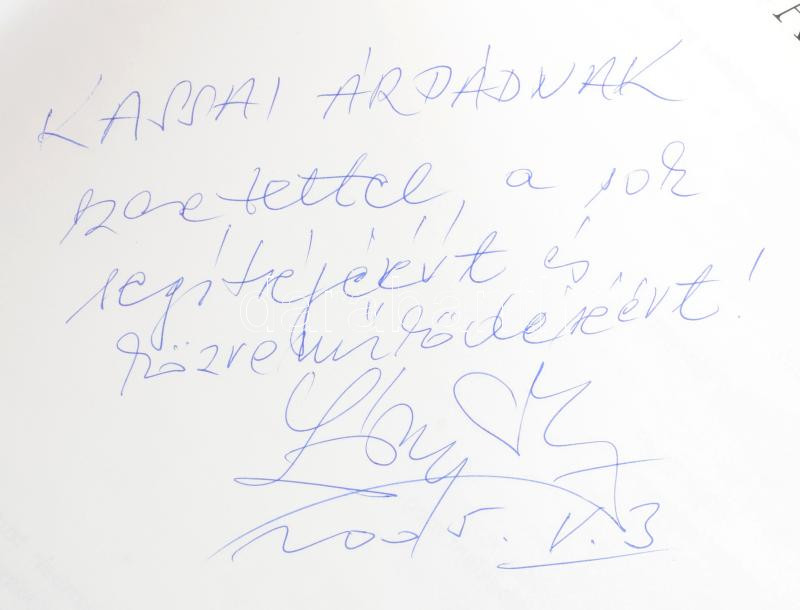 KASSAI ÁRPÁDNAK
szeretettel, a sok
segítségéért és
közreműködéséért!
2005. V. 3